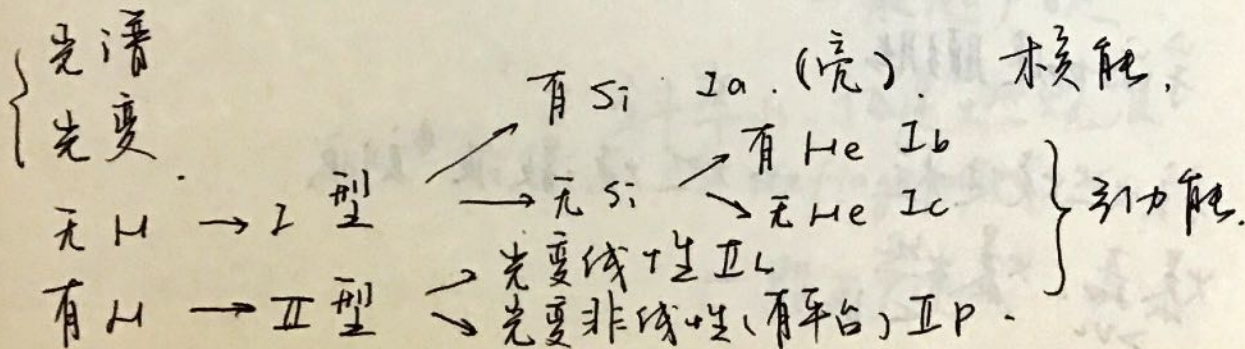 光谱
光变
有 Si Ia.(亮). 核能.
无 H → I 型 → 无 Si 有 He Ib
无 He Ic 引力能.
有 H → II 型 光变线性 IIL
光变非线性(有平台) IIP.